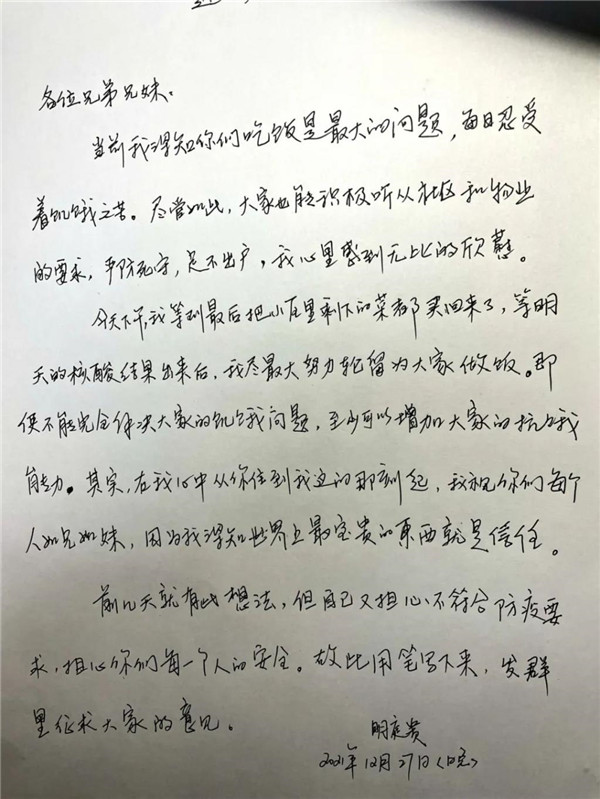 各位兄弟兄妹:
当前我得知你们吃饭是最大的问题,每日忍受
着饥饿之苦。尽管如此,大家也能积极听从社区和物业
的要求,严防死守,足不出户,我心里感到无比的欣慰。
今天下午,我等到最后把小区里剩下的菜都买回来了,等明
天的核酸结果出来后,我尽最大努力轮留为大家做饭。即
便不能完全解决大家的饥饿问题,至少可以增加大家的抗饿
能力。其实,在我心中从你住到我这的那刻起,我视你们每个
人如兄如妹,因为我得知世界上最宝贵的东西就是信任。
前几天就有此想法,但自己又担心不符合防疫要
求,担心你们每一个人的安全。故此用笔写下来,发群
里征求大家的意见。
明庭贵
2021年12月27日(晚)